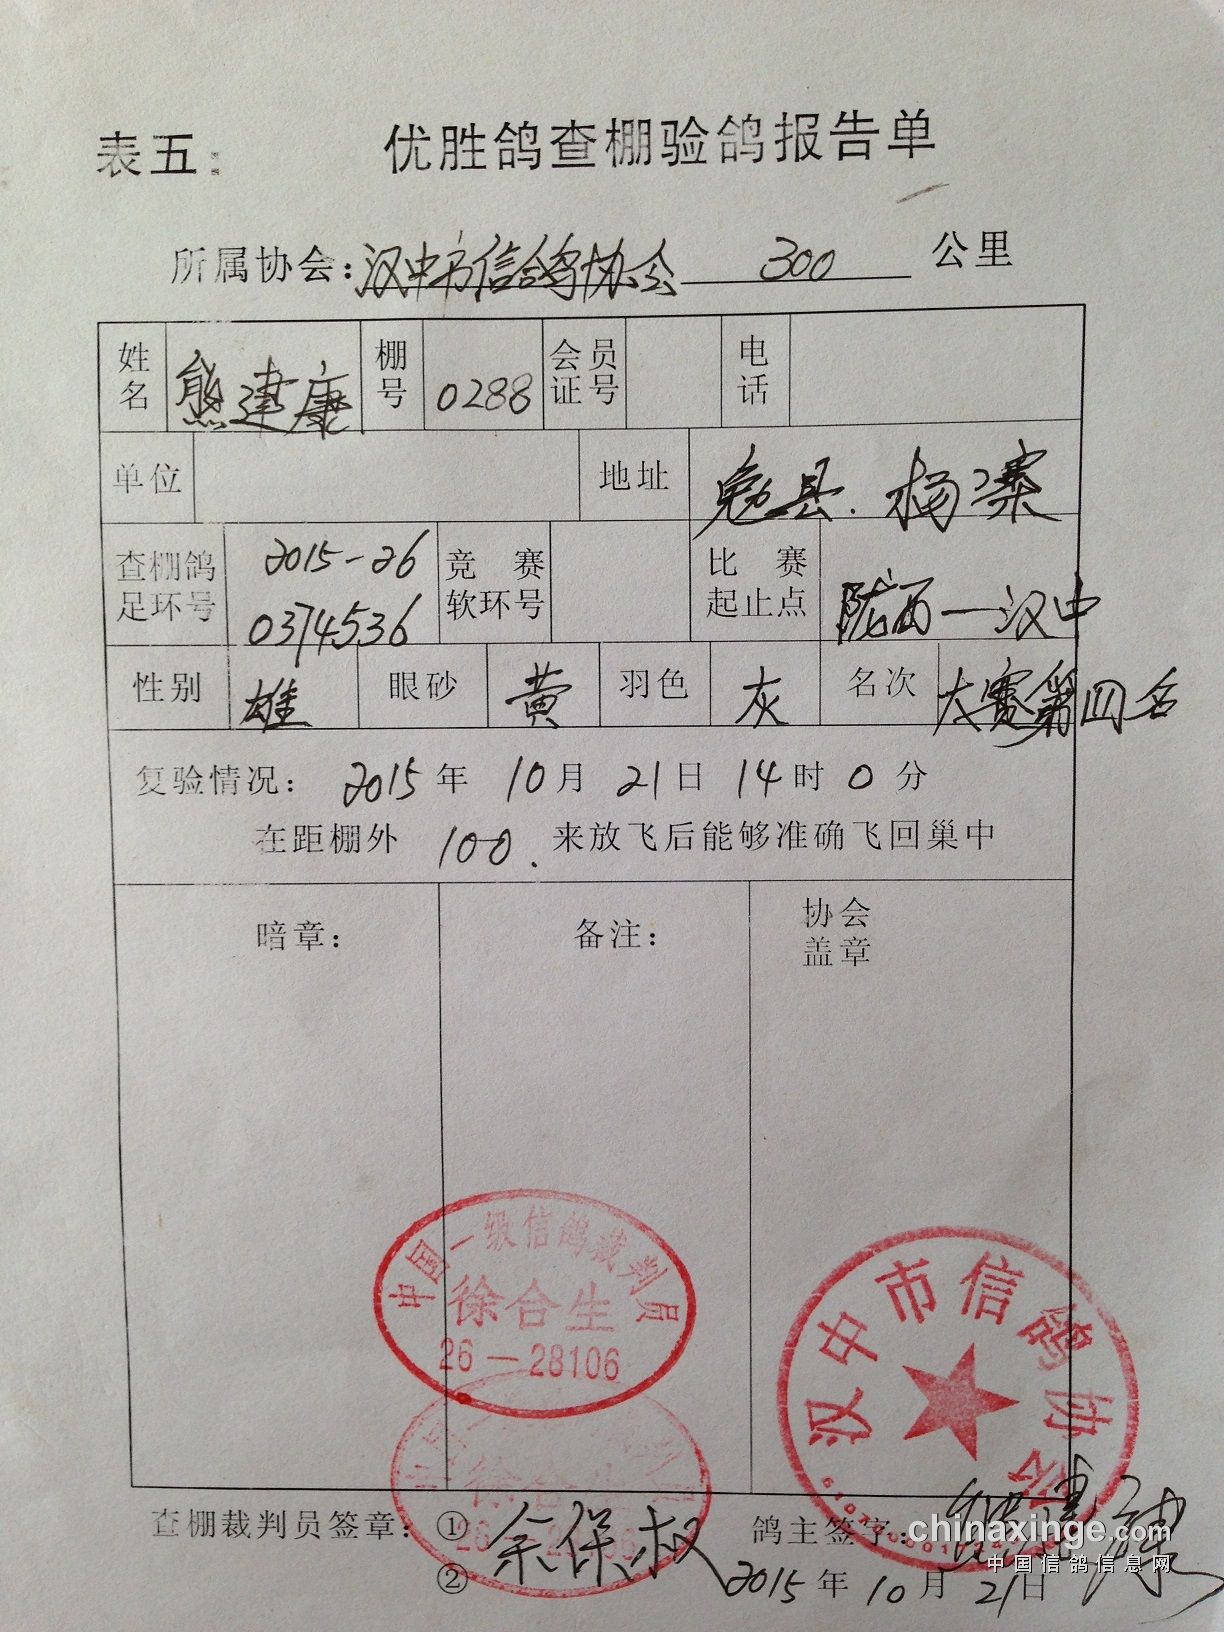 表五：
优胜鸽查棚验鸽报告单
所属协会：汉中市信鸽协会 300 公里
姓名 熊建康 棚号 0288 会员证号 电话
单位 地址 勉县.杨寨
查棚鸽足环号 2015-26 0374536 竞赛软环号 比赛起止点 陇西—汉中
性别 雄 眼砂 黄 羽色 灰 名次 大赛第四名
复验情况：2015年10月21日14时0分
在距棚外 100. 来放飞后能够准确飞回巢中
暗章：
备注：
协会盖章
中国一级信鸽裁判员
徐合生
26—28106
汉中市信鸽协会
徐合生
查棚裁判员签章：① 余保权
②
鸽主签字：熊建康
2015年10月21日
chinaxinge.com
中国信鸽信息网